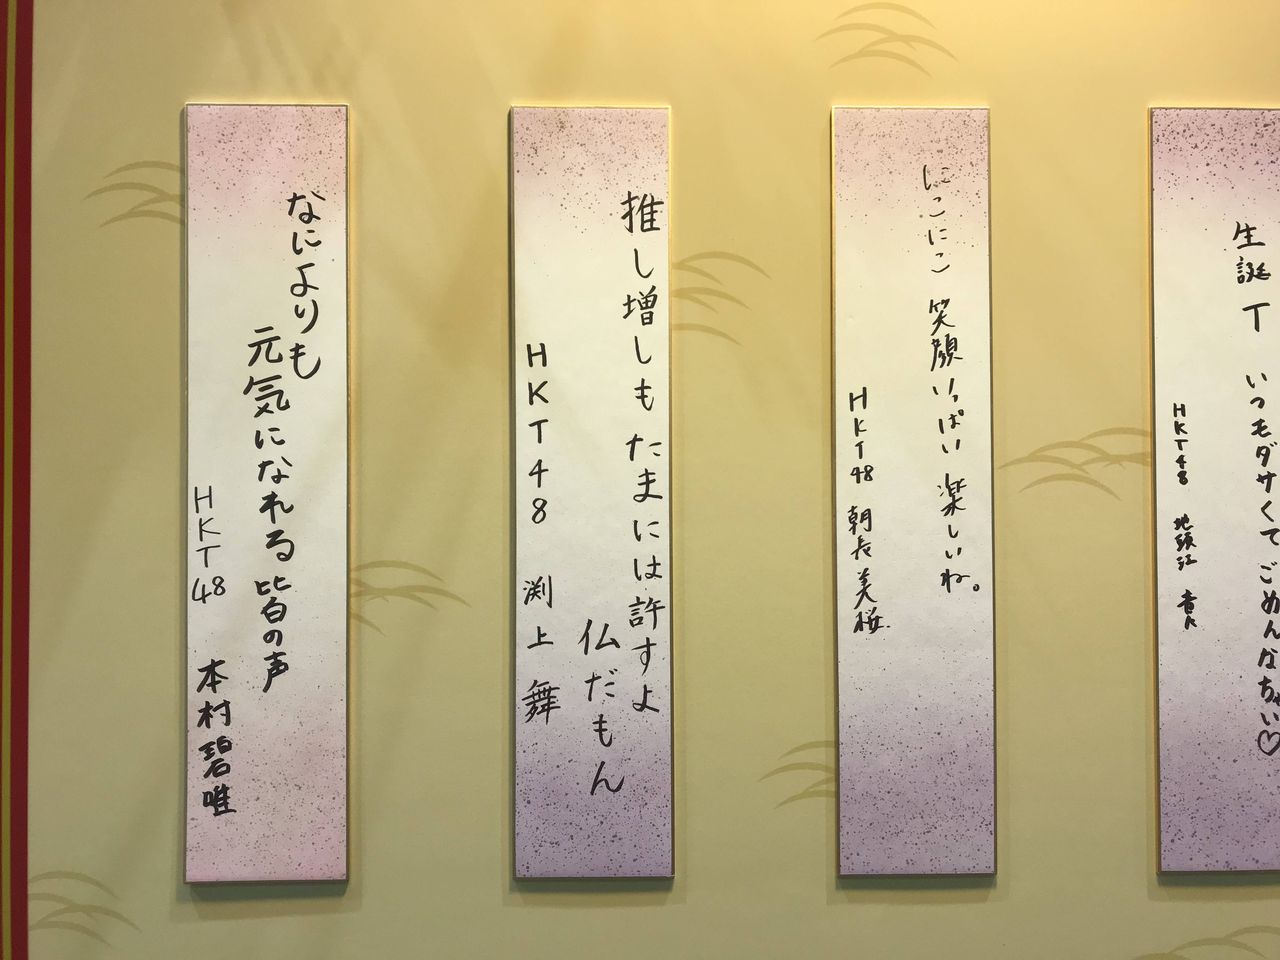 なによりも
元気になれる皆の声
HKT48 本村碧唯
推し増しも たまには許すよ
仏だもん
HKT48 渕上舞
にこにこ 笑顔いっぱい 楽しいね。
HKT48 朝長美桜
生誕T いつもダサくて ごめんなちゃい♡
HKT48 地頭江